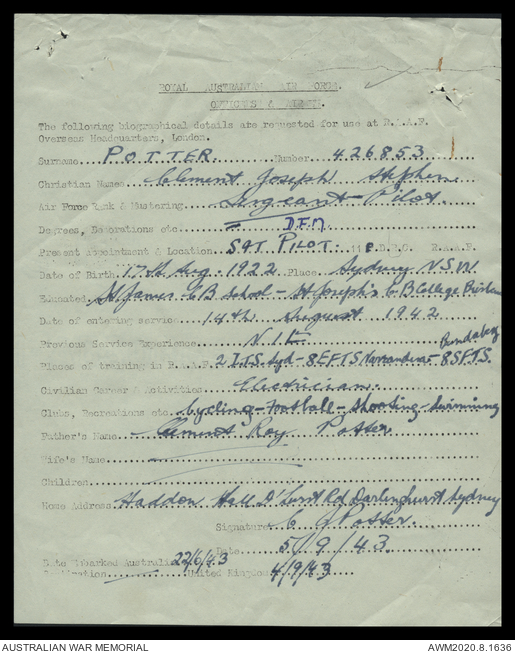 ROYAL AUSTRALIAN AIR FORCE.
OFFICERS & AIRMEN.
The following biographical details are requested for use at R.A.A.F.
Overseas Headquarters, London.
Surname POTTER Number 426853
Christian Names Clement Joseph Stephen
Air Force Rank & Mustering Sergeant Pilot
Degrees, Decorations etc D.F.M.
Present appointment & Location SGT PILOT 11 P.D.R.C. R.A.A.F.
Date of Birth 17th Aug. 1922 Place Sydney N.S.W.
Educated St James C B School - St Joseph's C B College Brisbane
Date of entering service 14th August 1942
Previous Service Experience NIL
Places of training in R.A.A.F. 2 I.T.S. Syd - 8 E.F.T.S Narrandera - 8 S.F.T.S. Bundaberg
Civilian Career & Activities Electrician
Clubs, Recreations etc Cycling - Football - Shooting - Swimming
Father's Name Clement Roy Potter
Wife's Name
Children
Home Address Haddon Hall D'hurst Rd Darlinghurst Sydney
Signature C J Potter.
Date 5/9/43.
Date Embarked Australia 22/6/43
Destination United Kingdom 4/9/43
AUSTRALIAN WAR MEMORIAL
AWM2020.8.1636